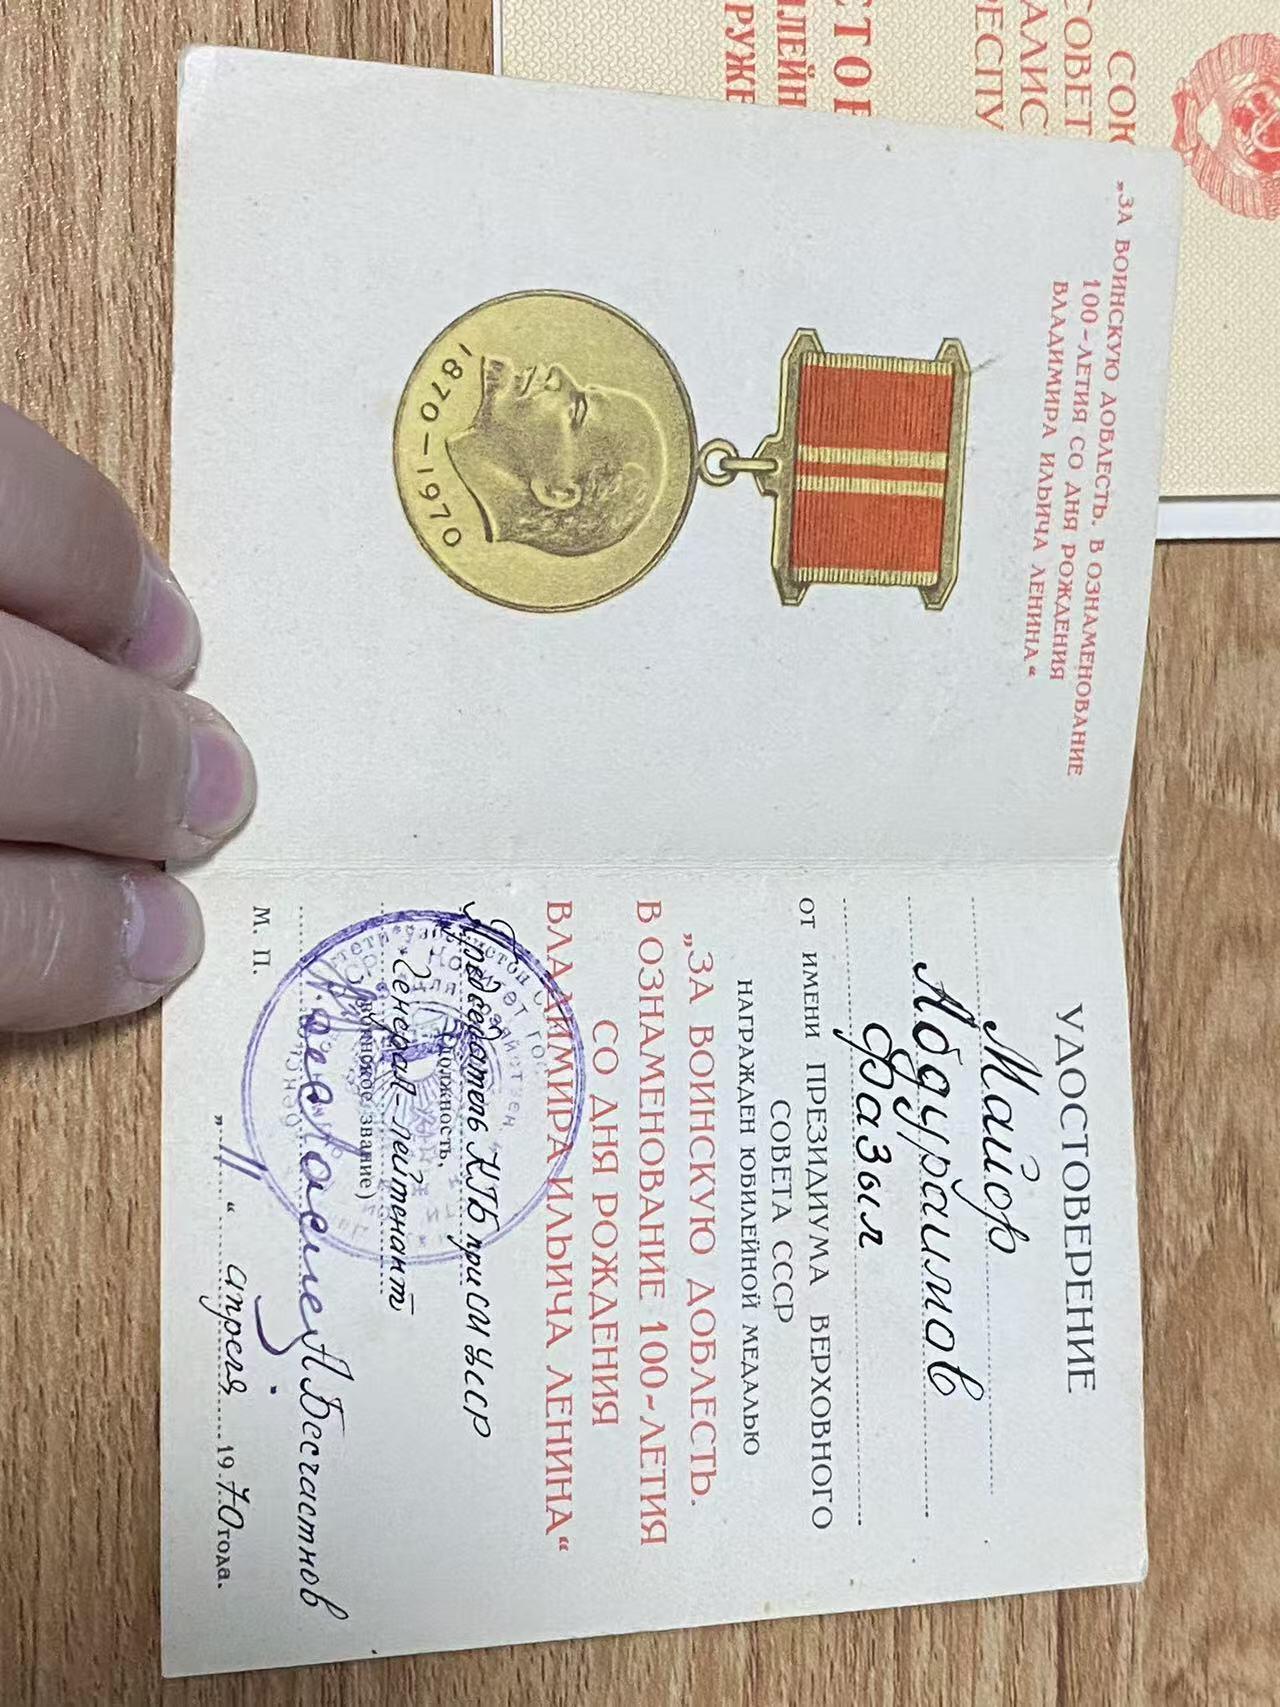 „ЗА ВОИНСКУЮ ДОБЛЕСТЬ. В ОЗНАМЕНОВАНИЕ
100-ЛЕТИЯ СО ДНЯ РОЖДЕНИЯ
ВЛАДИМИРА ИЛЬИЧА ЛЕНИНА“
1870-1970
УДОСТОВЕРЕНИЕ
Майор
Абдураимов
Фазыл
ОТ ИМЕНИ ПРЕЗИДИУМА ВЕРХОВНОГО
СОВЕТА СССР
НАГРАЖДЕН ЮБИЛЕЙНОЙ МЕДАЛЬЮ
„ЗА ВОИНСКУЮ ДОБЛЕСТЬ.
В ОЗНАМЕНОВАНИЕ 100-ЛЕТИЯ
СО ДНЯ РОЖДЕНИЯ
ВЛАДИМИРА ИЛЬИЧА ЛЕНИНА“
Председатель КГБ при СМ УССР
(должность,
Генерал-лейтенант
воинское звание)
А.Бесчастнов
М. П.
„ “ апреля 1970 года.
СОЮ
СОВЕТ
АЛИС
РЕСПУ
СТОВ
ЛЕЙН
РУЖЕ